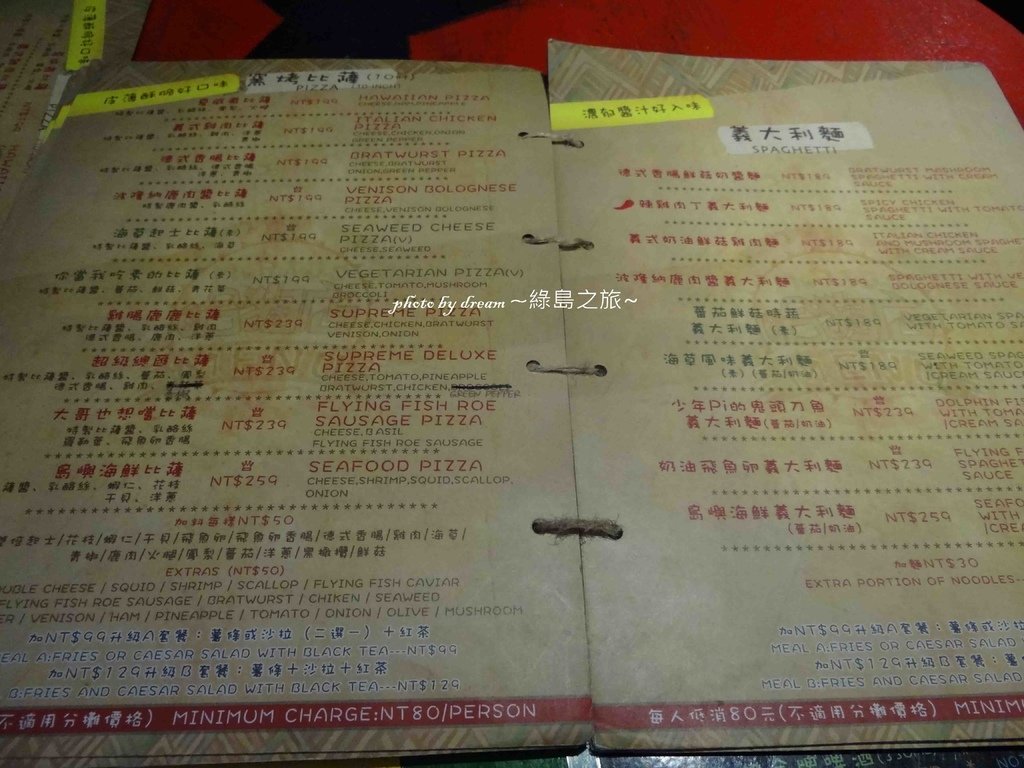 皮薄酥脆好口味
窯烤比薩(10吋)
PIZZA (10 INCH)
夏威夷比薩 NT$199 HAWAIIAN PIZZA
義式雞肉比薩 NT$199 ITALIAN CHICKEN PIZZA
特製比薩醬、乳酪絲、雞肉、洋蔥 CHEESE,CHICKEN,ONION
青椒 GREEN PEPPER
德式香腸比薩 NT$199 BRATWURST PIZZA
特製比薩醬、乳酪絲、德式香腸 CHEESE,BRATWURST
洋蔥、青椒 ONION,GREEN PEPPER
波隆納鹿肉醬比薩 NT$199 VENISON BOLOGNESE PIZZA
特製鹿肉醬、乳酪絲 CHEESE,VENISON BOLOGNESE
海草起士比薩(素) NT$199 SEAWEED CHEESE PIZZA(V)
特製比薩醬、乳酪絲、海草 CHEESE,SEAWEED
你當我吃素的比薩(素) NT$199 VEGETARIAN PIZZA(V)
特製比薩醬、蕃茄、鮮菇、青花菜 CHEESE,TOMATO,MUSHROOM
BROCCOLI
雞腸鹿鹿比薩 NT$239 SUPREME PIZZA
特製比薩醬、乳酪絲、雞肉 CHEESE,CHICKEN,BRATWURST
德式香腸、鹿肉、洋蔥 VENISON,ONION
超級總匯比薩 NT$239 SUPREME DELUXE PIZZA
特製比薩醬、乳酪絲、蕃茄、鳳梨 CHEESE,TOMATO,PINEAPPLE
德式香腸、雞肉、 BRATWURST,CHICKEN,
GREEN PEPPER
大哥也想嚐比薩 NT$239 FLYING FISH ROE SAUSAGE PIZZA
特製比薩醬、乳酪絲 CHEESE,BASIL
羅勒葉、飛魚卵香腸 FLYING FISH ROE SAUSAGE
島嶼海鮮比薩 NT$259 SEAFOOD PIZZA
薩醬、乳酪絲、蝦仁、花枝 CHEESE,SHRIMP,SQUID,SCALLOP,
干貝、洋蔥 ONION
加料每樣NT$50
雙倍起士/花枝/蝦仁/干貝/飛魚卵/飛魚卵香腸/德式香腸/雞肉/海草/
青椒/鹿肉/火腿/鳳梨/蕃茄/洋蔥/黑橄欖/鮮菇
EXTRAS (NT$50)
OUBLE CHEESE / SQUID / SHRIMP / SCALLOP / FLYING FISH CAVIAR
FLYING FISH ROE SAUSAGE / BRATWURST / CHIKEN / SEAWEED
ER / VENISON / HAM / PINEAPPLE / TOMATO / ONION / OLIVE / MUSHROOM
加NT$99升級A套餐：薯條或沙拉（二選一）+紅茶
MEAL A:FRIES OR CAESAR SALAD WITH BLACK TEA---NT$99
加NT$129升級B套餐：薯條+沙拉+紅茶
B:FRIES AND CAESAR SALAD WITH BLACK TEA---NT$129
不適用分攤價格) MINIMUM CHARGE:NT80/PERSON
濃郁醬汁好入味
義大利麵
SPAGHETTI
德式香腸鮮菇奶醬麵 NT$189 BRATWURST MASHROOM
SPAGHETTI WITH CREAM
SAUCE
辣雞肉丁義大利麵 NT$189 SPICY CHICKEN
SPAGHETTI WITH TOMATO
SAUCE
義式奶油鮮菇雞肉麵 NT$189 ITALIAN CHICKEN
AND MUSHROOM SPAGHE
WITH CREAM SAUCE
波隆納鹿肉醬義大利麵 NT$189 SPAGHETTI WITH VE
BOLOGNESE SAUCE
蕃茄鮮菇時蔬
義大利麵(素) NT$189 VEGETARIAN SPA
WITH TOMATO SA
海草風味義大利麵 NT$189 SEAWEED SPAG
(素)(蕃茄/奶油) WITH TOMATO
/CREAM SAUCE
少年Pi的鬼頭刀魚 NT$239 DOLPHIN FIS
義大利麵(蕃茄/奶油) WITH TOMA
/CREAM SA
奶油飛魚卵義大利麵 NT$239 FLYING F
SPAGHE
SAUCE
島嶼海鮮義大利麵 NT$259 SEAFO
(蕃茄/奶油) WITH
/CREA
加麵NT$30
EXTRA PORTION OF NOODLES--
加NT$99升級A套餐：薯條或沙拉
MEAL A:FRIES OR CAESAR SALAD
加NT$129升級B套餐：薯
MEAL B:FRIES AND CAESAR SAL
每人低消80元(不適用分攤價格) MINIM
photo by dream ～綠島之旅～